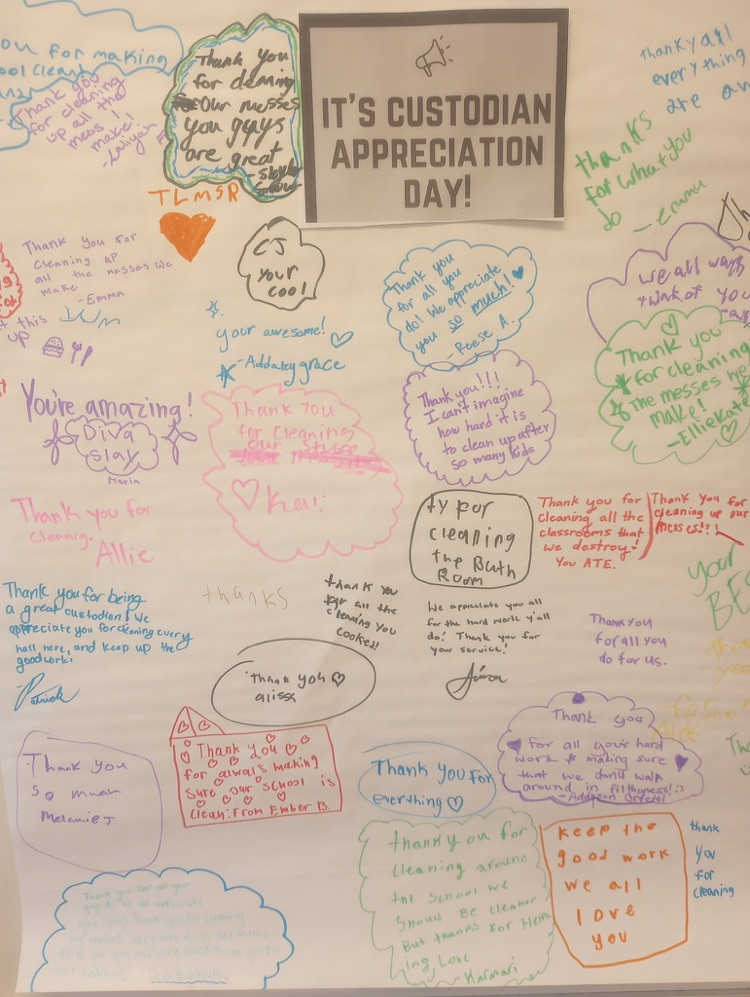 ou for making
ool clean!
Thank you
for cleaning
up all the
mess I
make!
Thank you
for cleaning
Our messes
you guys
are great
TLMSR
IT'S CUSTODIAN
APPRECIATION
DAY!
thank y'all
everything
are aw
thanks
for what you
do - emma
Thank you for
cleaning up
all the messes we
make
-Emma
CJ
your
cool
Thank you
for all you
do! We appreciate
you so much!
- Reese A.
we all ways
think of you
t this
up
your awesome!
-Addaleygrace
Thank you
for cleaning
The messes we
make!
-EllieKate
You're amazing!
Diva
slay
Maria
Thank You
for Cleaning
our
Kai!
Thank you!!!
I can't imagine
how hard it is
to clean up after
so many kids
Thank you for
cleaning.
Allie
ty for
cleaning
the Bath
Room
Thank you for
cleaning all the
classrooms that
we destroy!
You ATE.
Thank you for
cleaning up our
messes!!!
your
BE
Thank you for being
a great custodian! We
appreciate you for cleaning every
hall here, and keep up the
good work!
Patrick
thanks
thank you
for all the
cleaning you
cooked!
We appreciate you all
for the hard work y'all
do! Thank you for
your service!
Thank you
for all you
do for us.
Thank you
alissa
Thank you
so much
Melanie J
Thank you
for always making
sure our school is
clean! From Ember B.
Thank you for
everything
Thank you
for all your hard
work & making sure
that we don't walk
around in filthyness! :)
thank you for
cleaning around
the school we
Should Be cleaner
But thanks for Help
ing Love
Karmari
keep the
good work
we all
love
you
thank
you
for
cleaning